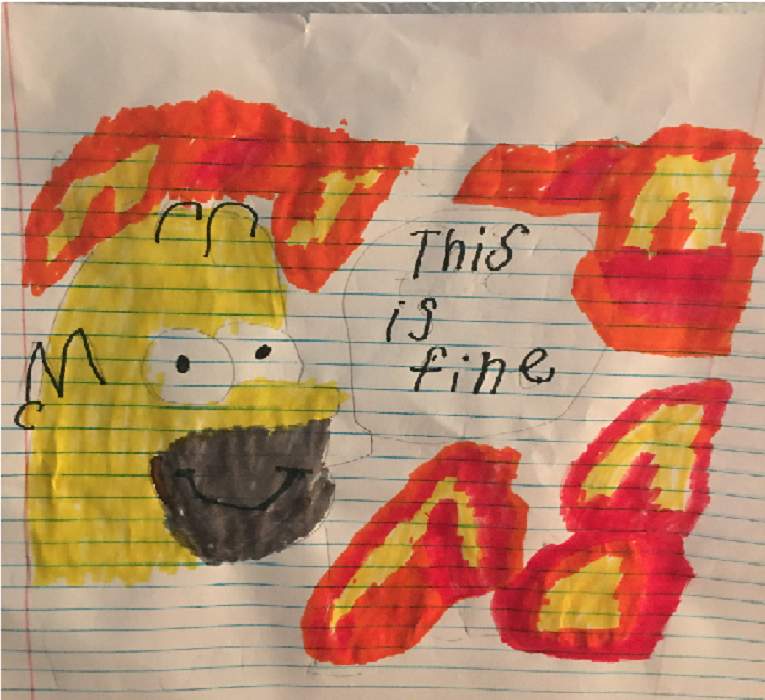 This
is
fine